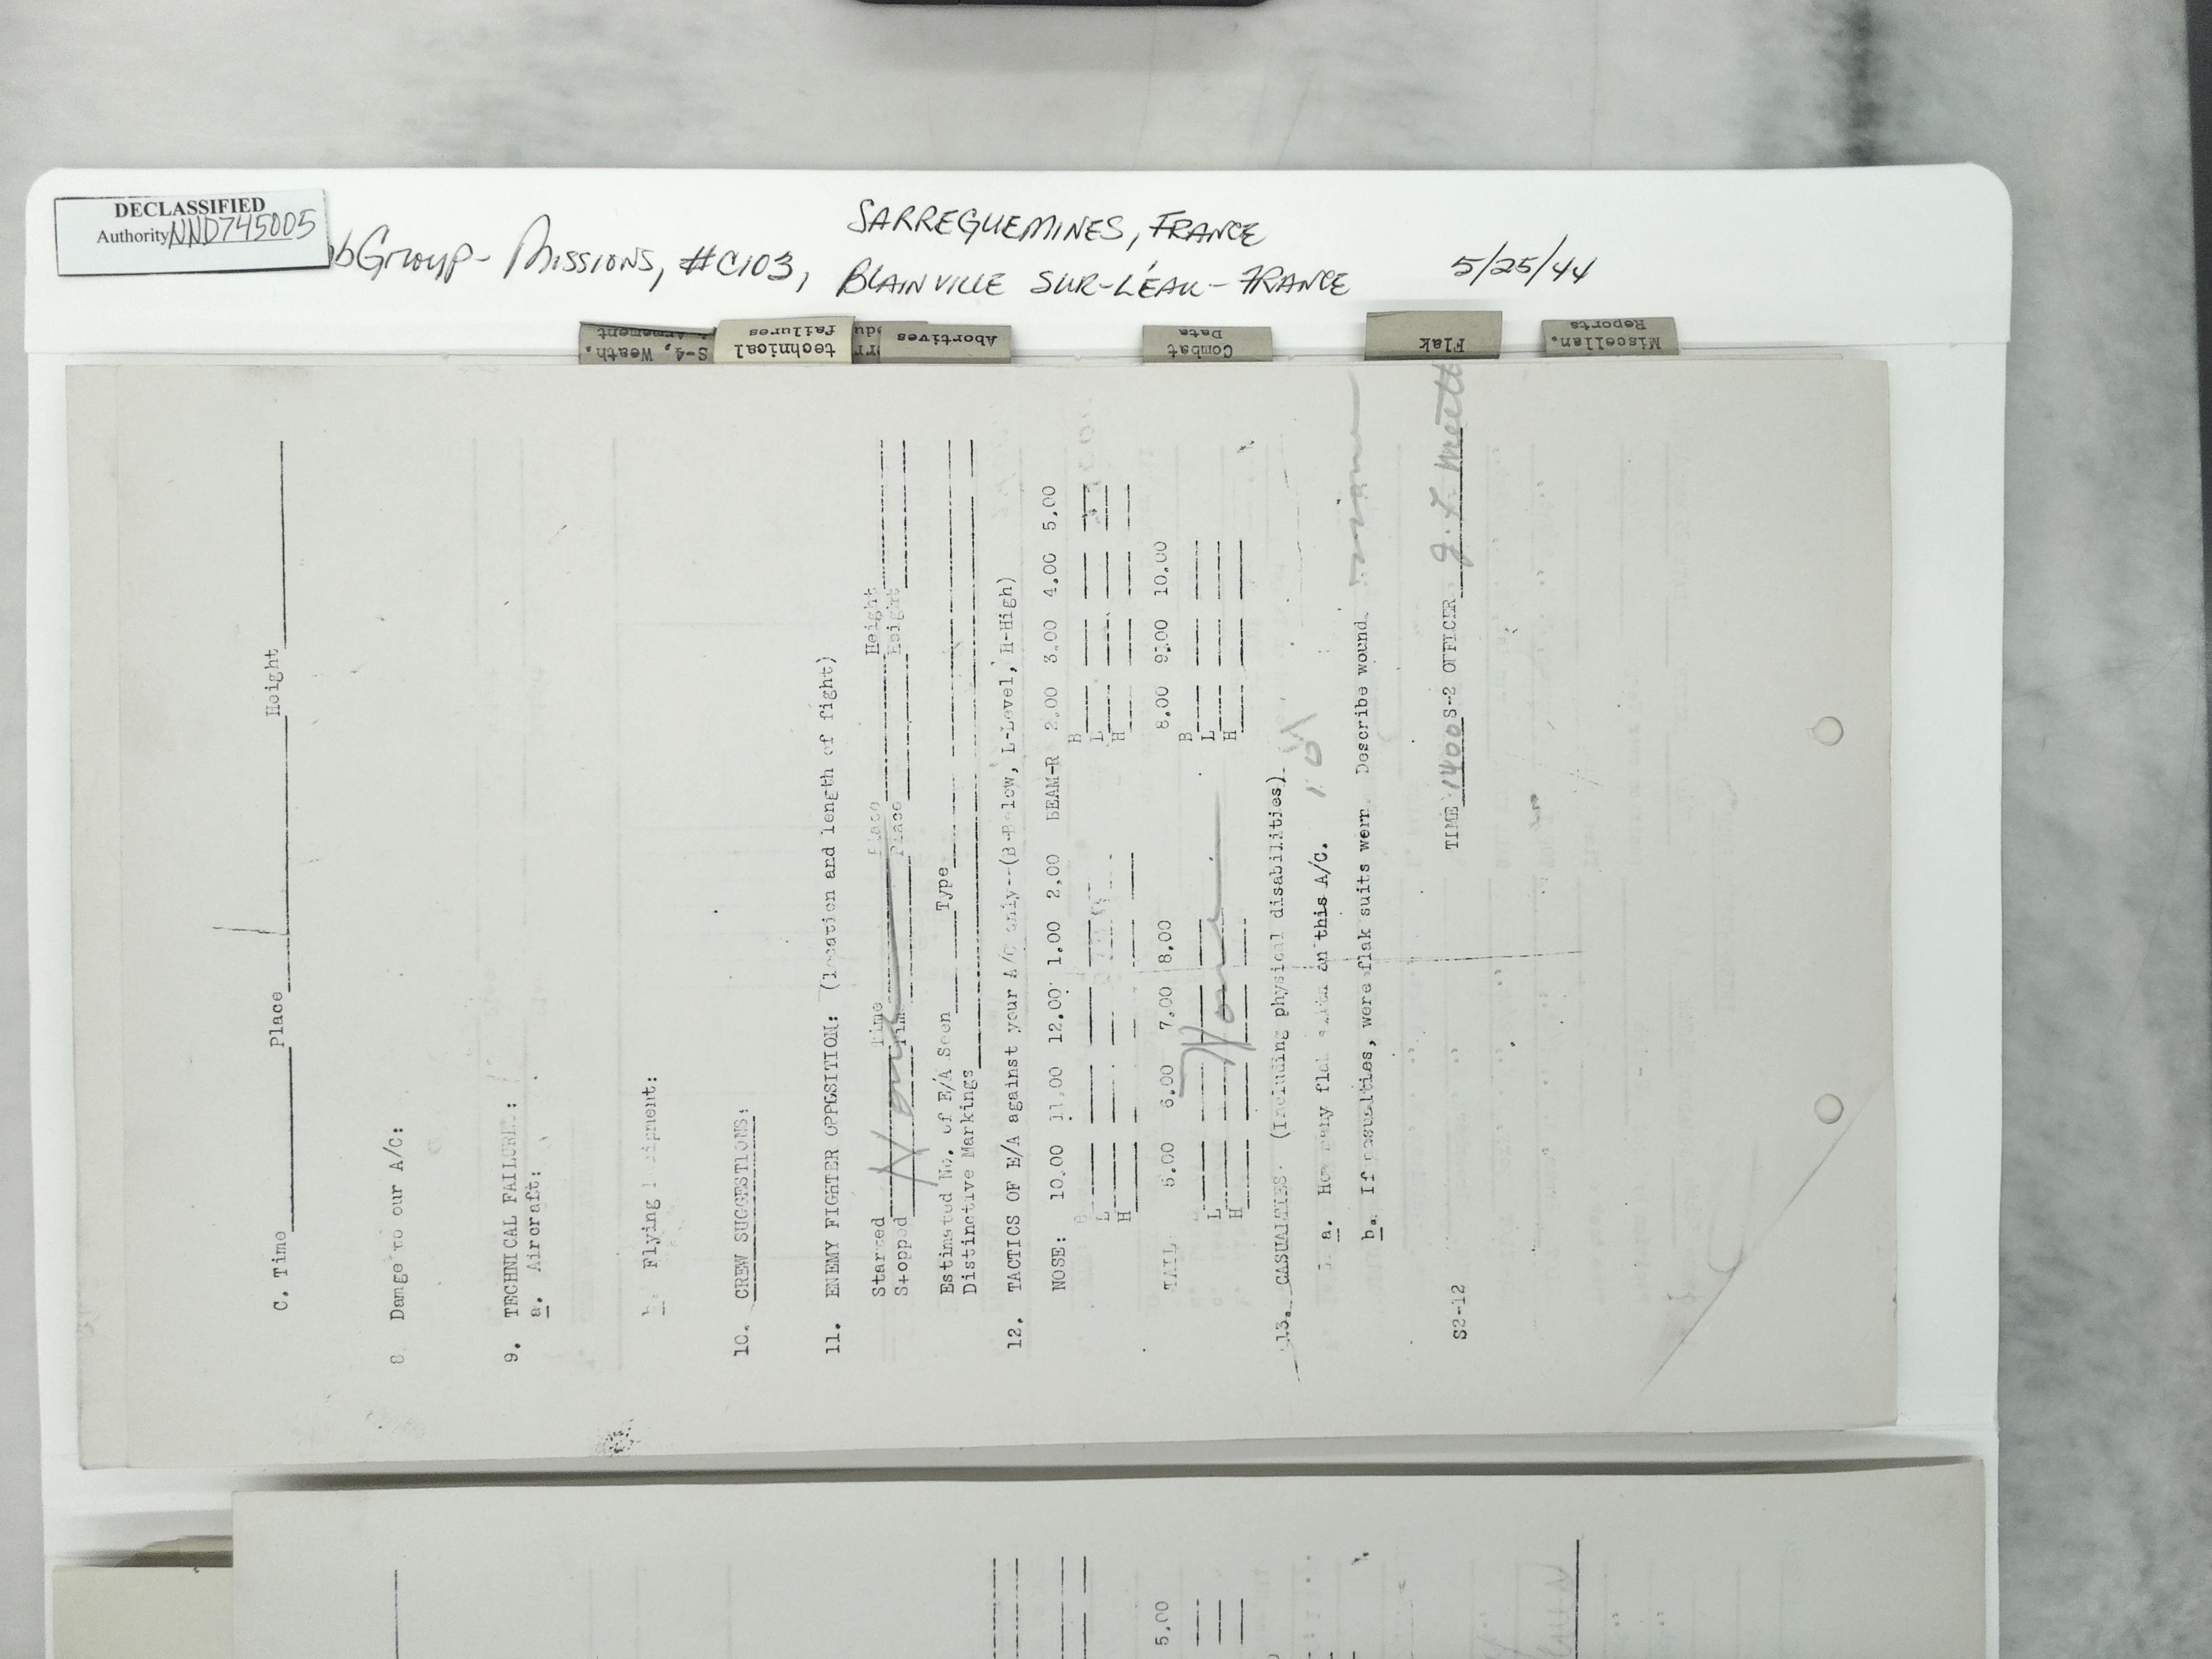 DECLASSIFIED
Authority NND745005
bGroup - Missions, #C103,
SARREGUEMINES, FRANCE
BLAINVILLE SUR-L'EAU - FRANCE
5/25/44
S-4, Weath.
Armement
technical
failures
Abortives
Combat
Data
Flak
Miscellan.
Reports
C. Time Place Height
8 Damage to our A/C:
9. TECHNICAL FAILURE:
a. Aircraft:
Flying
10. CREW SUGGESTIONS:
11. ENEMY FIGHTER OPPOSITION: (location and length of fight)
Started Time Place Height
Stopped Time Place Height
None
Estimated No. of E/A Seen Type
Distinctive Markings
12. TACTICS OF E/A against your A/C only--(B-Below, L-Level, H-High)
NOSE: 10.00 11.00 12.00 1.00 2.00 BEAM-R 2.00 3.00 4.00 5.00
B
L L
H H
TAIL 5.00 6.00 7.00 8.00 8.00 9.00 10.00
B
L L
H H
None
13. CASUALTIES. (Including physical disabilities).
a. How many flak suits on this A/C. 10
b. If casualties, were flak suits worn. Describe wound.
TIME 1400 S-2 OFFICER
S2-12
5.00